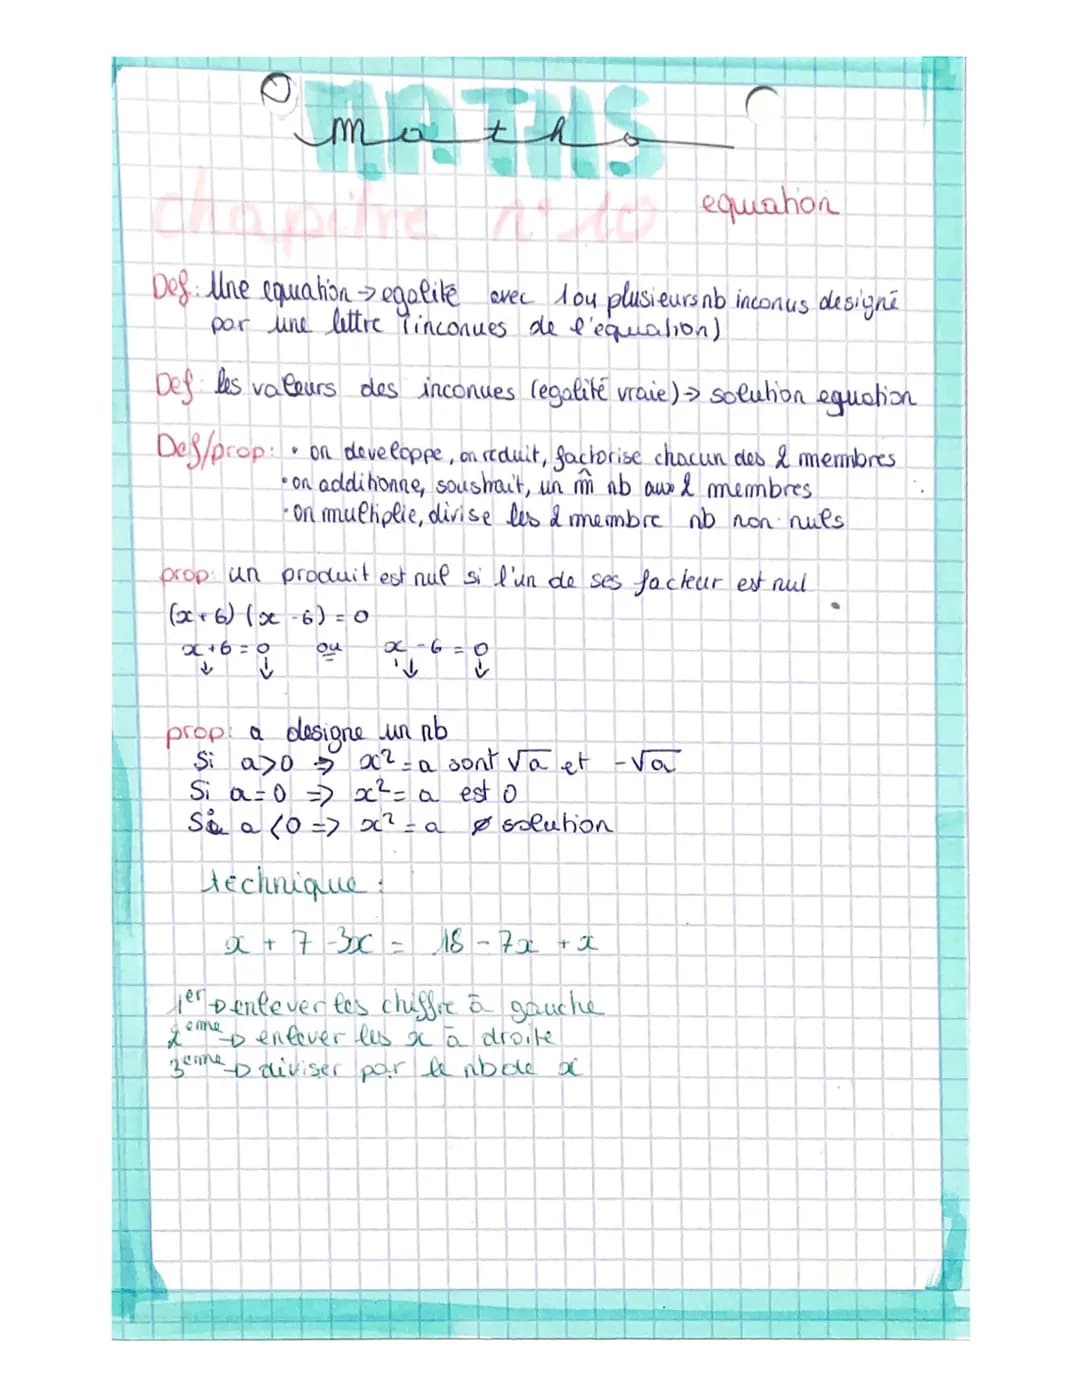 MATHS
maths
chapitre n° 10 equation
Def: Une equation → egalité avec 1 ou plusieurs nb inconus designé
par une lettre (inconues de l'equation)
Def: les valeurs des inconues (egalité vraie) → solution equation
Def/prop: • on developpe, on reduit, factorise chacun des 2 membres
• on additionne, soustrait, un m̂ nb aux 2 membres
• on multiplie, divise les 2 membre nb non nuls
prop: un produit est nul si l'un de ses facteur est nul
(x+6) (x-6) = 0
x+6 = 0 ou x-6 = 0
↓ ↓ ↓ ↓
prop: a designe un nb
Si a>0 => x² = a sont √a et -√a
Si a=0 => x² = a est 0
Si a<0 => x² = a ∅ solution
technique:
x + 7 -3x = 18 - 7x + x
1er → enlever les chiffre à gauche
2eme → enlever les x à droite
3eme → diviser par le nb de x